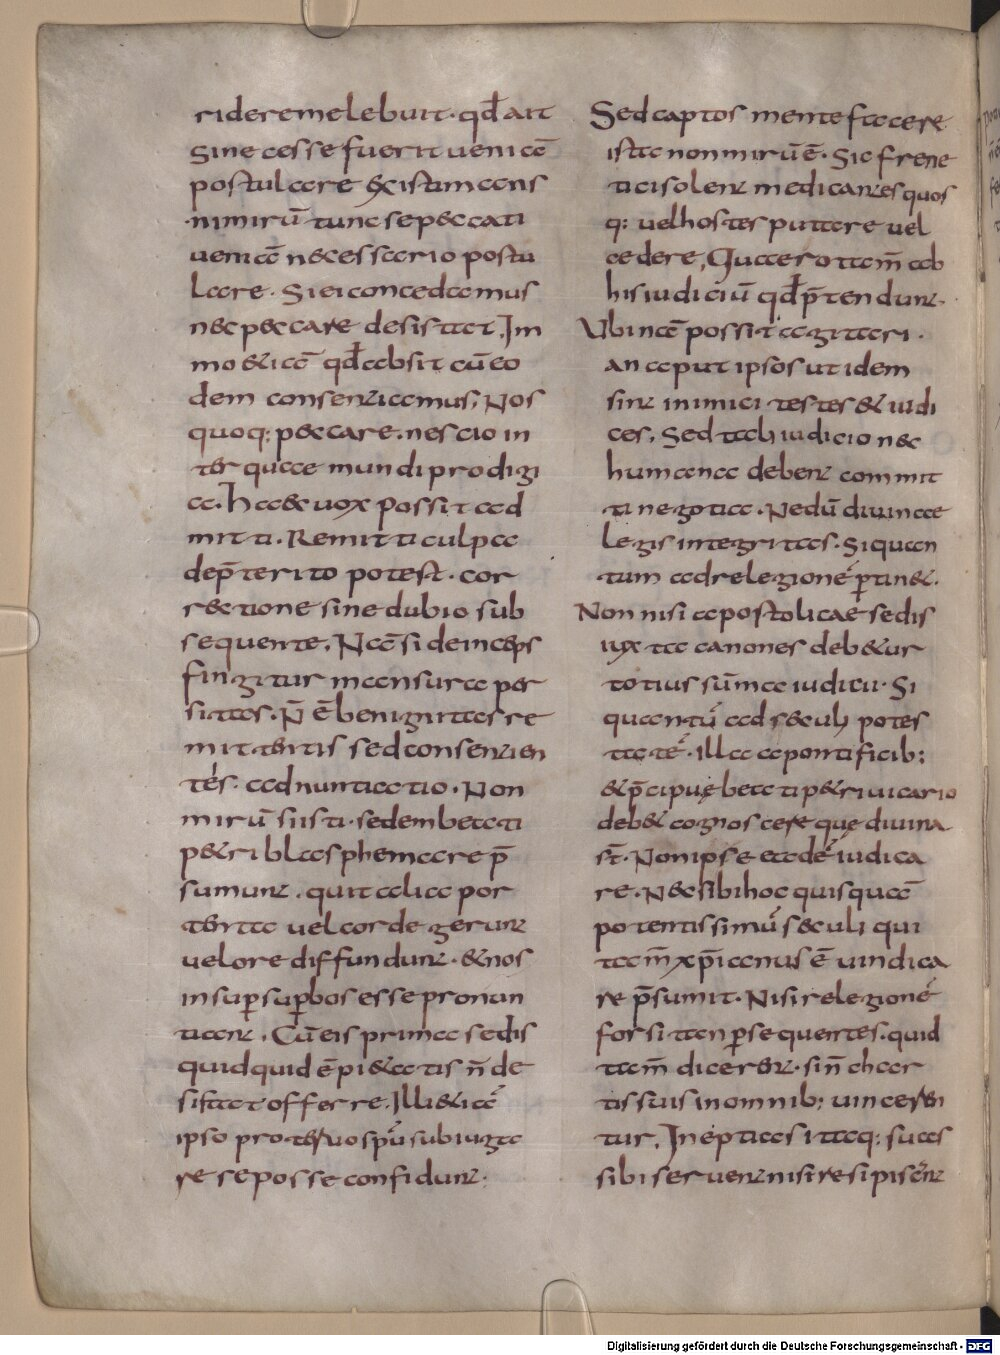 ridere me lebuit · qđ ait
Si necesse fuerit ueniã
postulare existimans
nimirũ tunc se peccati
ueniã necessario postu
lare · Si ei concedamus
nec peccare desistat, Im
mo etiã qđ absit cũ eo
dem consentiamus, Nos
quoq; peccare · nescio in
ter quae mundi prodigi
a · haec uox possit ad
mitti · Remitti culpa
de p̄terito potest · cor
rectione sine dubio sub
sequente, Nã si deinceps
fingitur mansura per
sitas · N̄ ẽ benignitas re
mittentis sed consentien
tes · adnuntiatio · Non
mirũ si isti · sedem beati
petri blasphemare p̄
sumunt · qui talia por
tenta uel corde gerunt
uel ore diffundunt · et nos
insuper superbos esse pronun
tiant, Cũ eis prima sedis
quidquid ẽ pietatis n̄ de
sistat offerre, Illi etiã
ipso proteruo spũ subiuga
re se posse confidunt ·
Sed captos mente facere
ista non mirũ ẽ · Sic frene
tici solent medicantes quos
q; uel hostes putare uel
cedere, Quaero tam̄ ab
his iudiciũ qđ p̄tendunt ·
Ubi nã possit agitari ·
an aput ipsos ut idem
sint inimici testes et iudi
ces, Sed tali iudicio nec
humana debent commit
ti negotia · Nedũ diuinae
legis integritas · Si quan
tum ad relegionẽ ꝑtinet ·
Non nisi apostolicae sedis
iuxta canones debetur
totius sũma iudicii · Si
quantũ ad seculi potes
tatẽ · illa a pontificib;
et p̄cipuę beati petri uicario
debet cognoscere quę diuina
st̄ · Non ipse eadẽ iudica
re · Nec sibi hoc quisquã
potentissimũ seculi qui
tam̄ xp̄ianus ẽ uindica
re p̄sumit · Nisi relegionẽ
forsitan ꝑsequentes · quid
tam̄ dicerent · si n̄ char
tis suis in omnib; uinceren
tur, Ineptias itaq; suas
sibi seruent nisi resipiscent
Digitalisierung gefördert durch die Deutsche Forschungsgemeinschaft - DFG